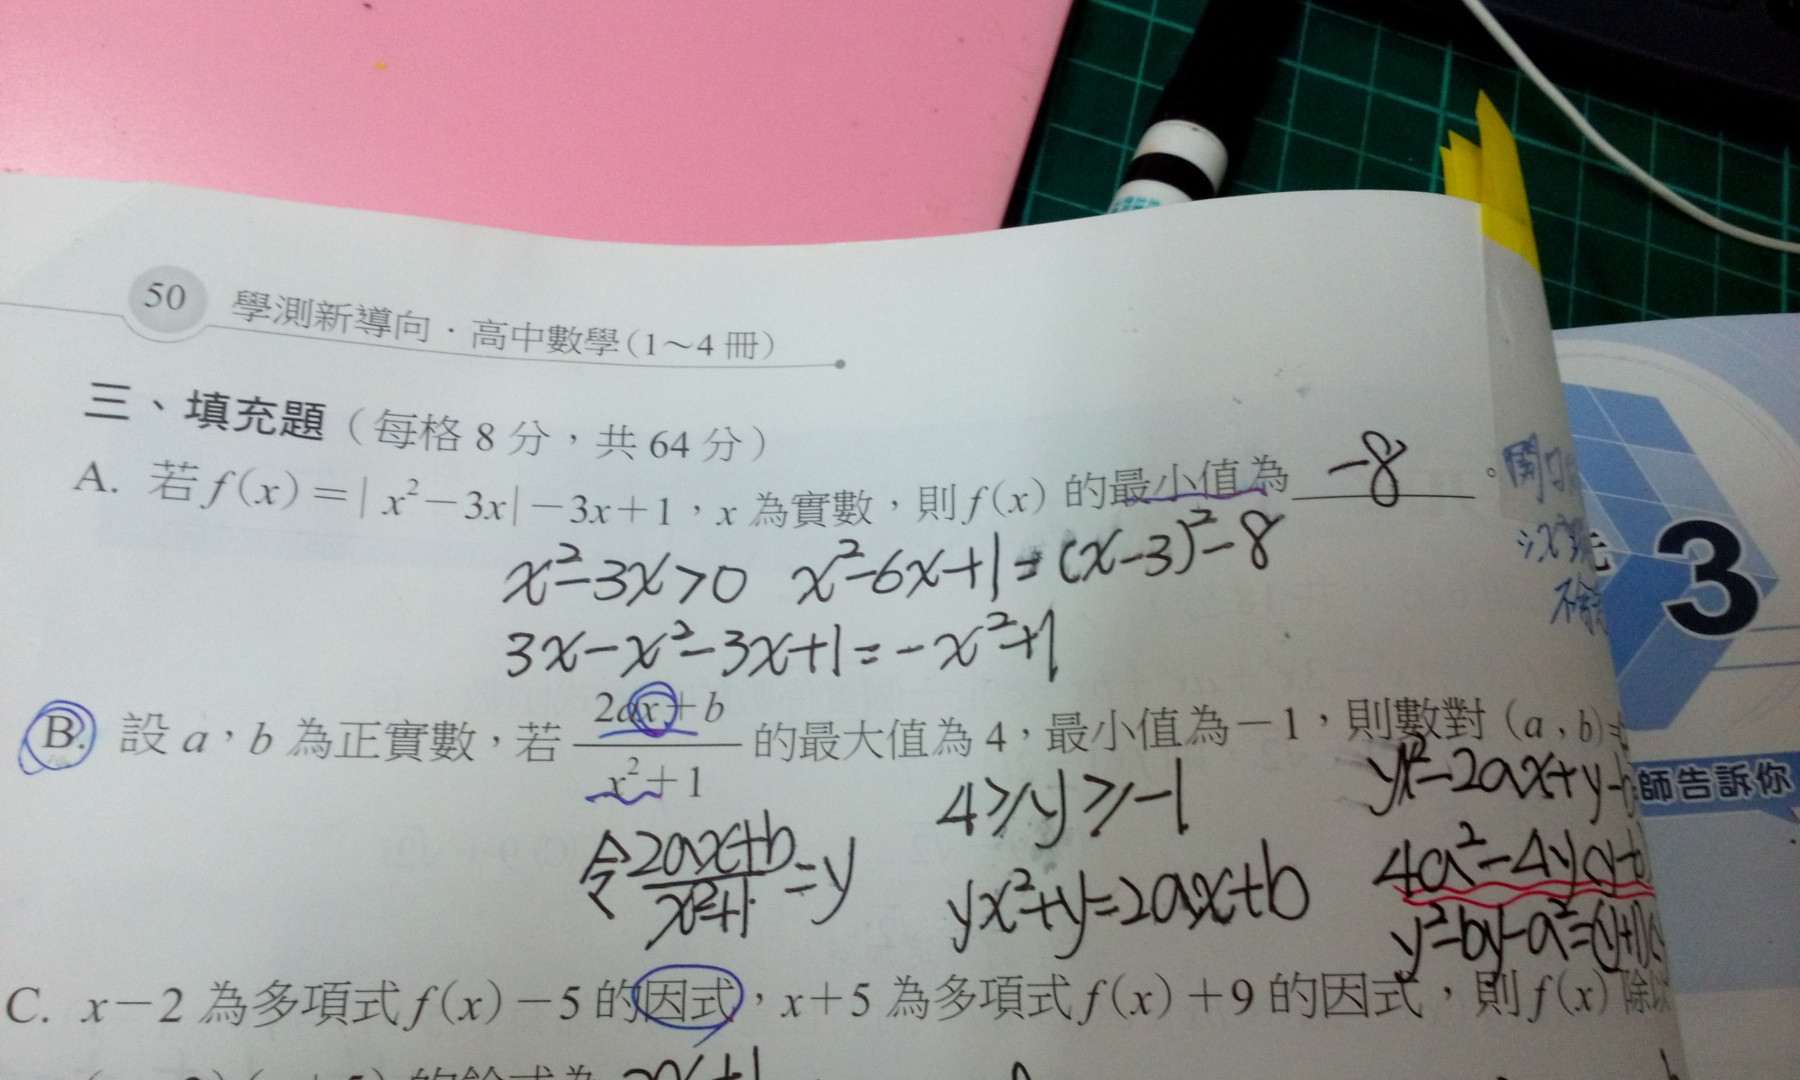 50 學測新導向．高中數學(1～4冊)
三、填充題（每格8分，共64分）
A. 若f(x)=|x²-3x|-3x+1，x為實數，則f(x)的最小值為 -8 。
x²-3x>0 x²-6x+1=(x-3)²-8
3x-x²-3x+1=-x²+1
B. 設a，b為正實數，若 (2ax+b)/(x²+1) 的最大值為4，最小值為-1，則數對(a,b)=
4≥y≥-1
yx²-2ax+y-b
令 (2ax+b)/(x²+1) =y
yx²+y=2ax+b
4a²-4y(y-b)
y²-by-a²=(y+1)(
C. x-2為多項式f(x)-5的因式，x+5為多項式f(x)+9的因式，則f(x)除以
的餘式為 2x+1
3
師告訴你